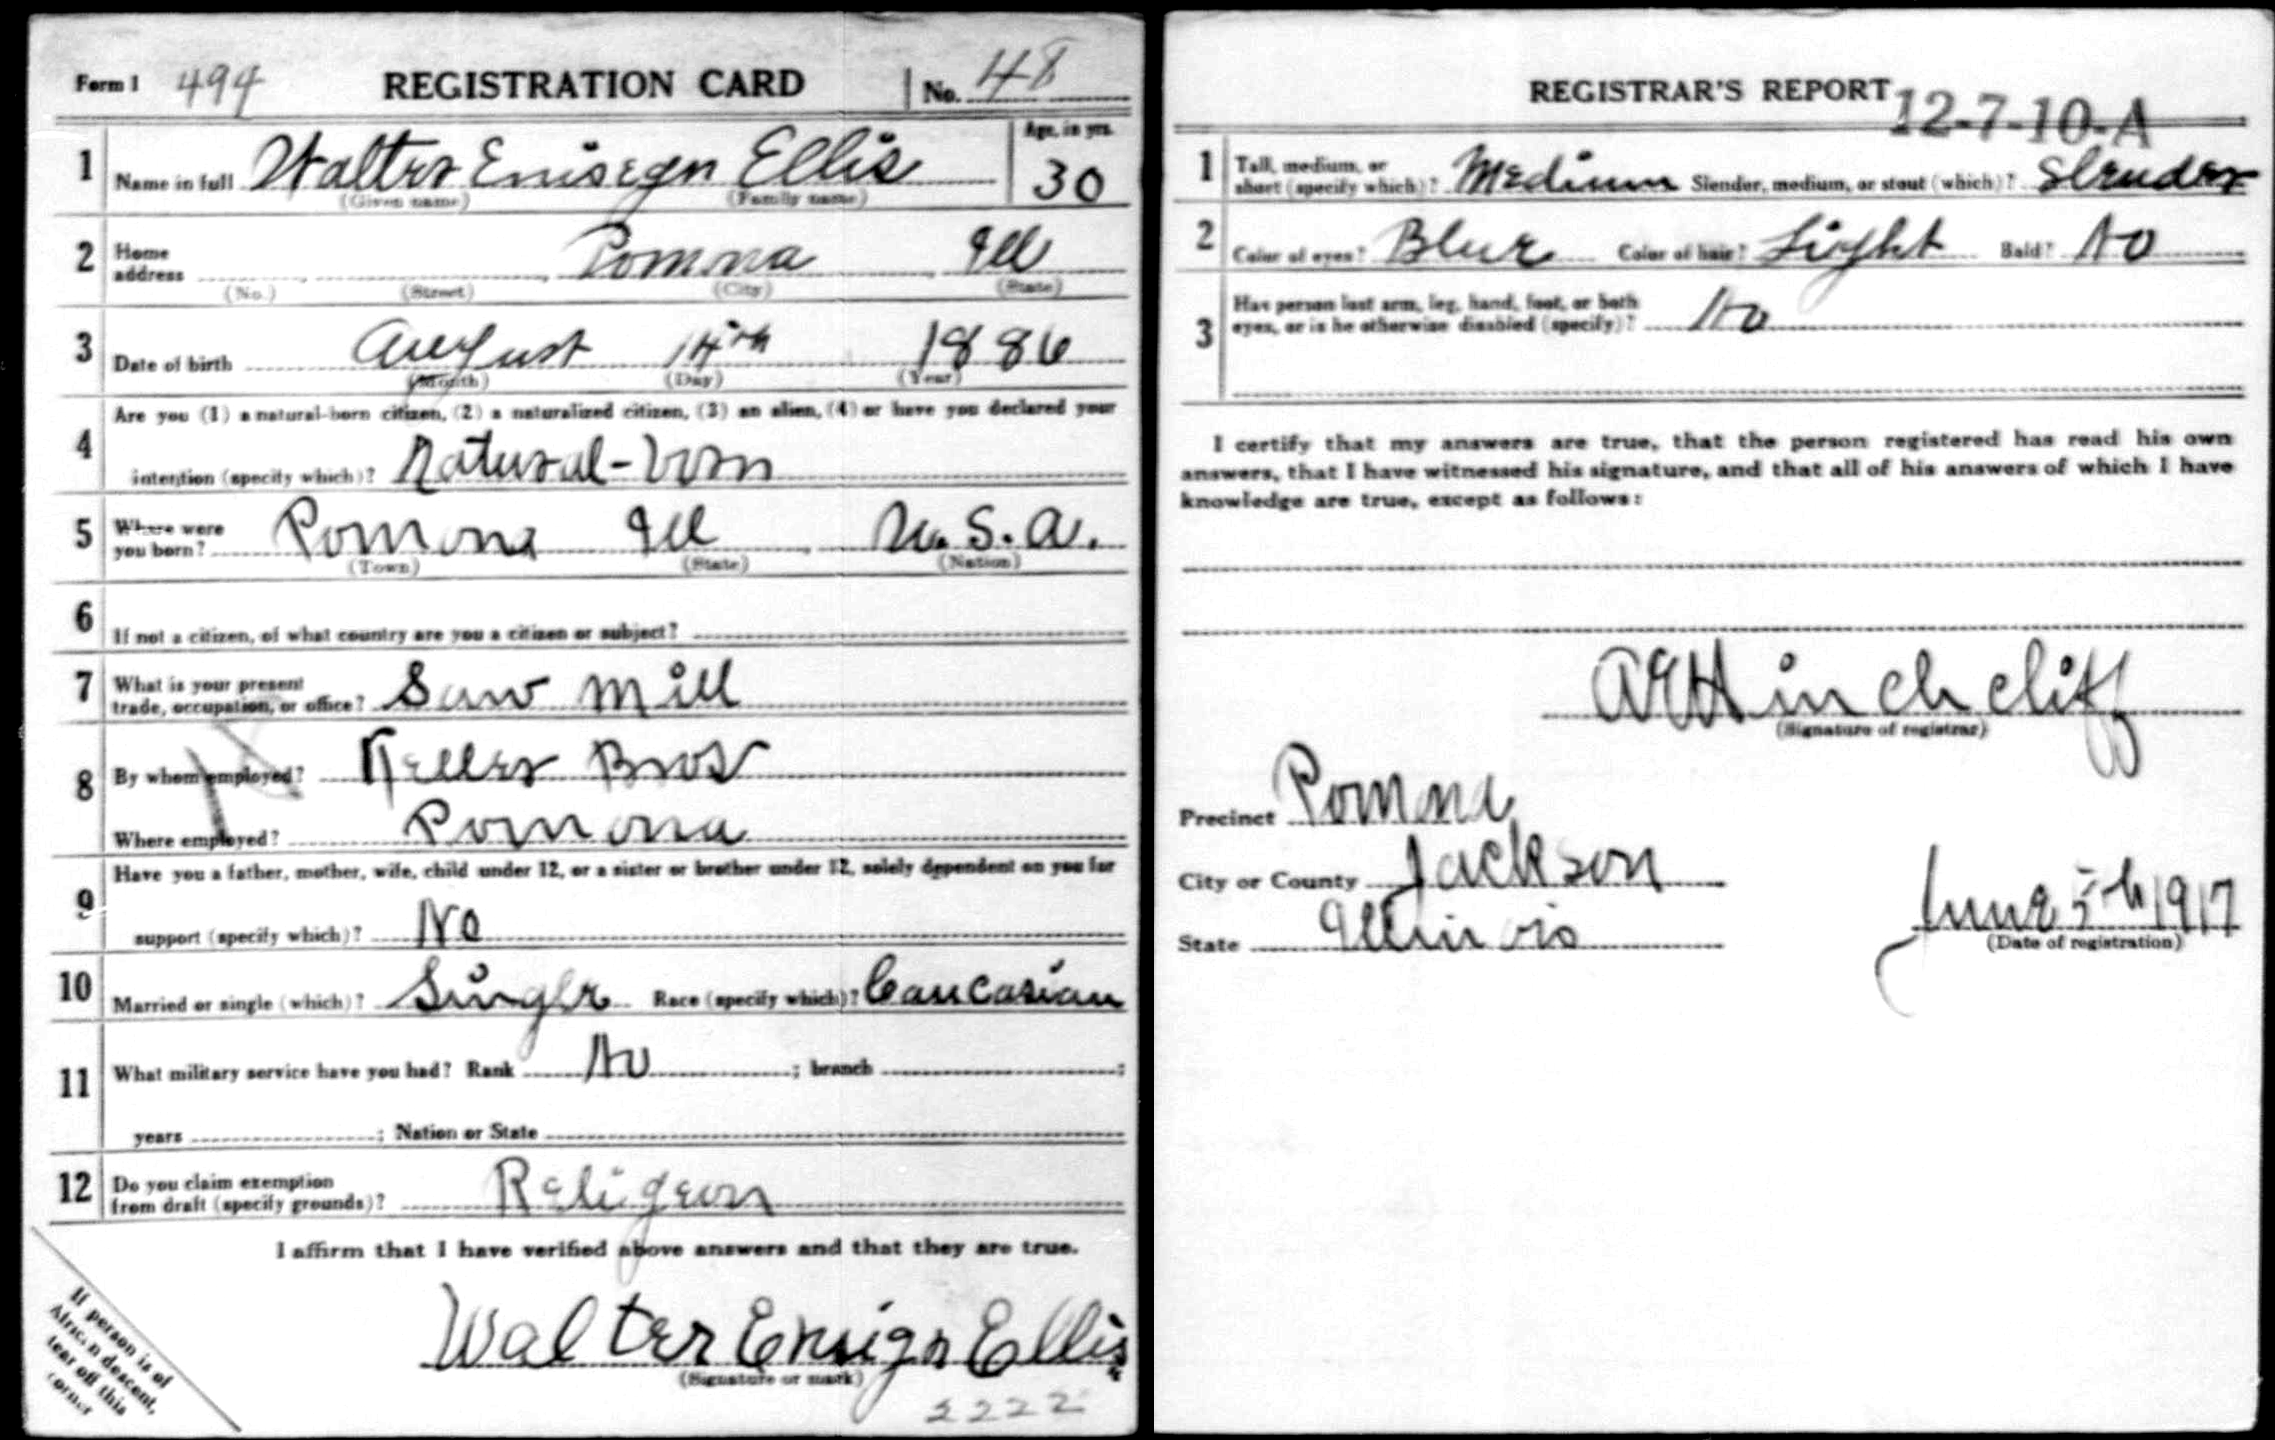 Form 1 494 REGISTRATION CARD No. 48
1 Name in full Walter Enisegn Ellis Age, in yrs. 30
(Given name) (Family name)
2 Home address Pomona Ill
(No.) (Street) (City) (State)
3 Date of birth August 14th 1886
(Month) (Day) (Year)
Are you (1) a natural-born citizen, (2) a naturalized citizen, (3) an alien, (4) or have you declared your
4 intention (specify which)? Natural-born
5 Where were you born? Pomona Ill U.S.A.
(Town) (State) (Nation)
6 If not a citizen, of what country are you a citizen or subject?
7 What is your present trade, occupation, or office? Saw Mill
8 By whom employed? Keller Bros
Where employed? Pomona
Have you a father, mother, wife, child under 12, or a sister or brother under 12, solely dependent on you for
9 support (specify which)? No
10 Married or single (which)? Single Race (specify which)? Caucasian
11 What military service have you had? Rank No ; branch ;
years ; Nation or State
12 Do you claim exemption from draft (specify grounds)? Religeon
I affirm that I have verified above answers and that they are true.
Walter Ensign Ellis
(Signature or mark)
2222
If person is of
African descent,
tear off this
corner
REGISTRAR'S REPORT 12-7-10-A
1 Tall, medium, or short (specify which)? Medium Slender, medium, or stout (which)? Slender
2 Color of eyes? Blue Color of hair? Light Bald? No
3 Has person lost arm, leg, hand, foot, or both eyes, or is he otherwise disabled (specify)? No
I certify that my answers are true, that the person registered has read his own
answers, that I have witnessed his signature, and that all of his answers of which I have
knowledge are true, except as follows:
AE Hinchcliff
(Signature of registrar)
Precinct Pomona
City or County Jackson
State Illinois June 5th 1917
(Date of registration)